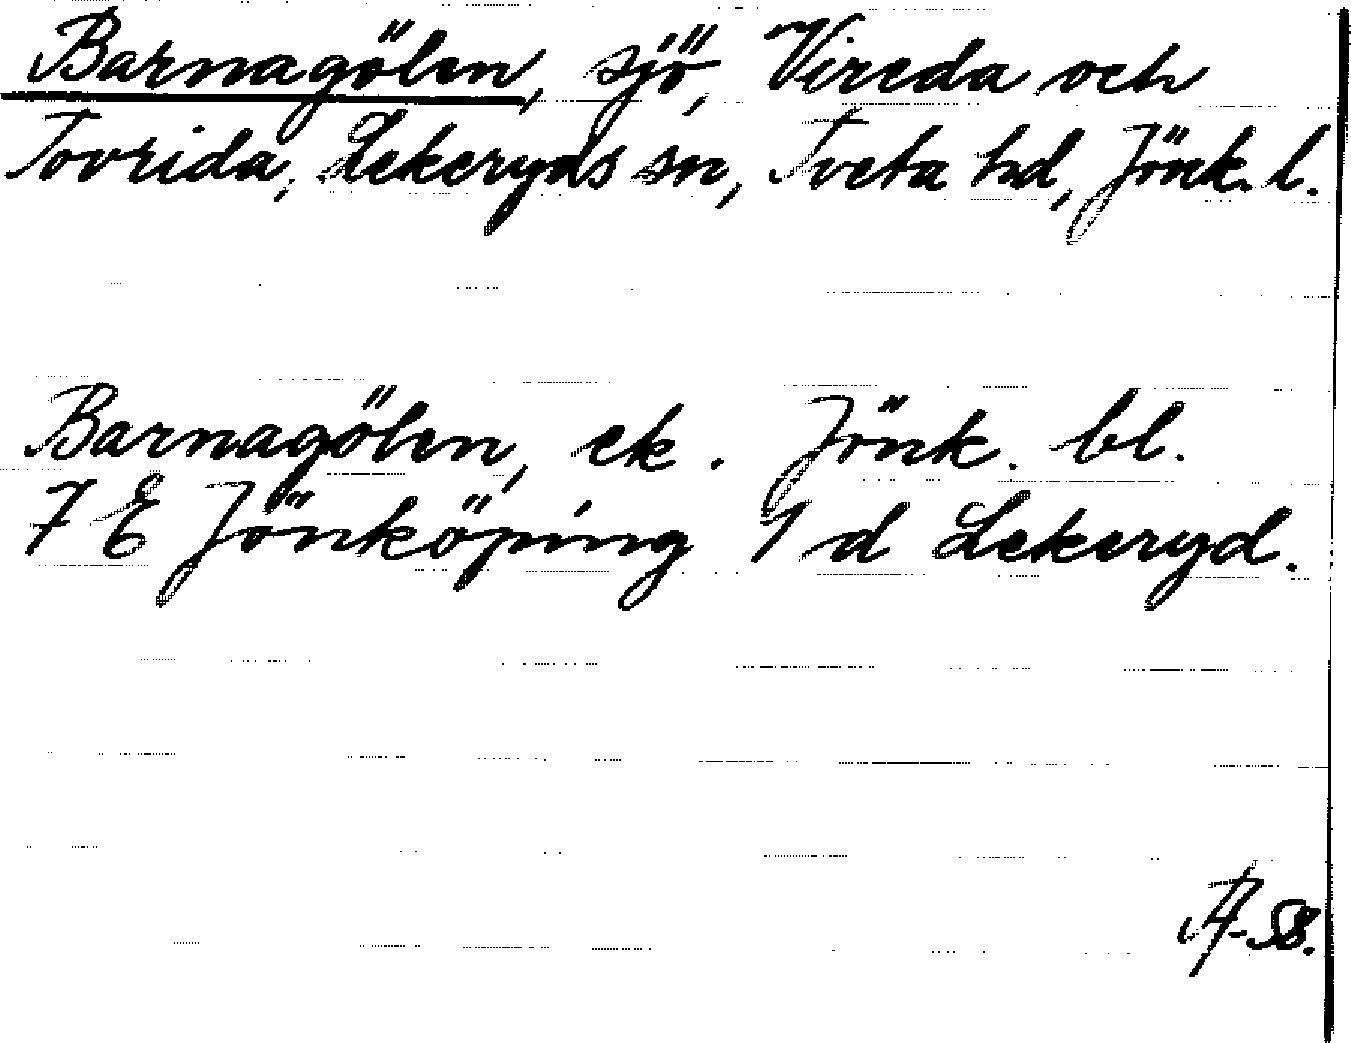 Barnagölen, sjö, Vireda och
Tovrida, Lekeryds sn, Tveta hd, Jönk. l.
Barnagölen, ek. Jönk. bl.
7 E Jönköping 9 d Lekeryd.